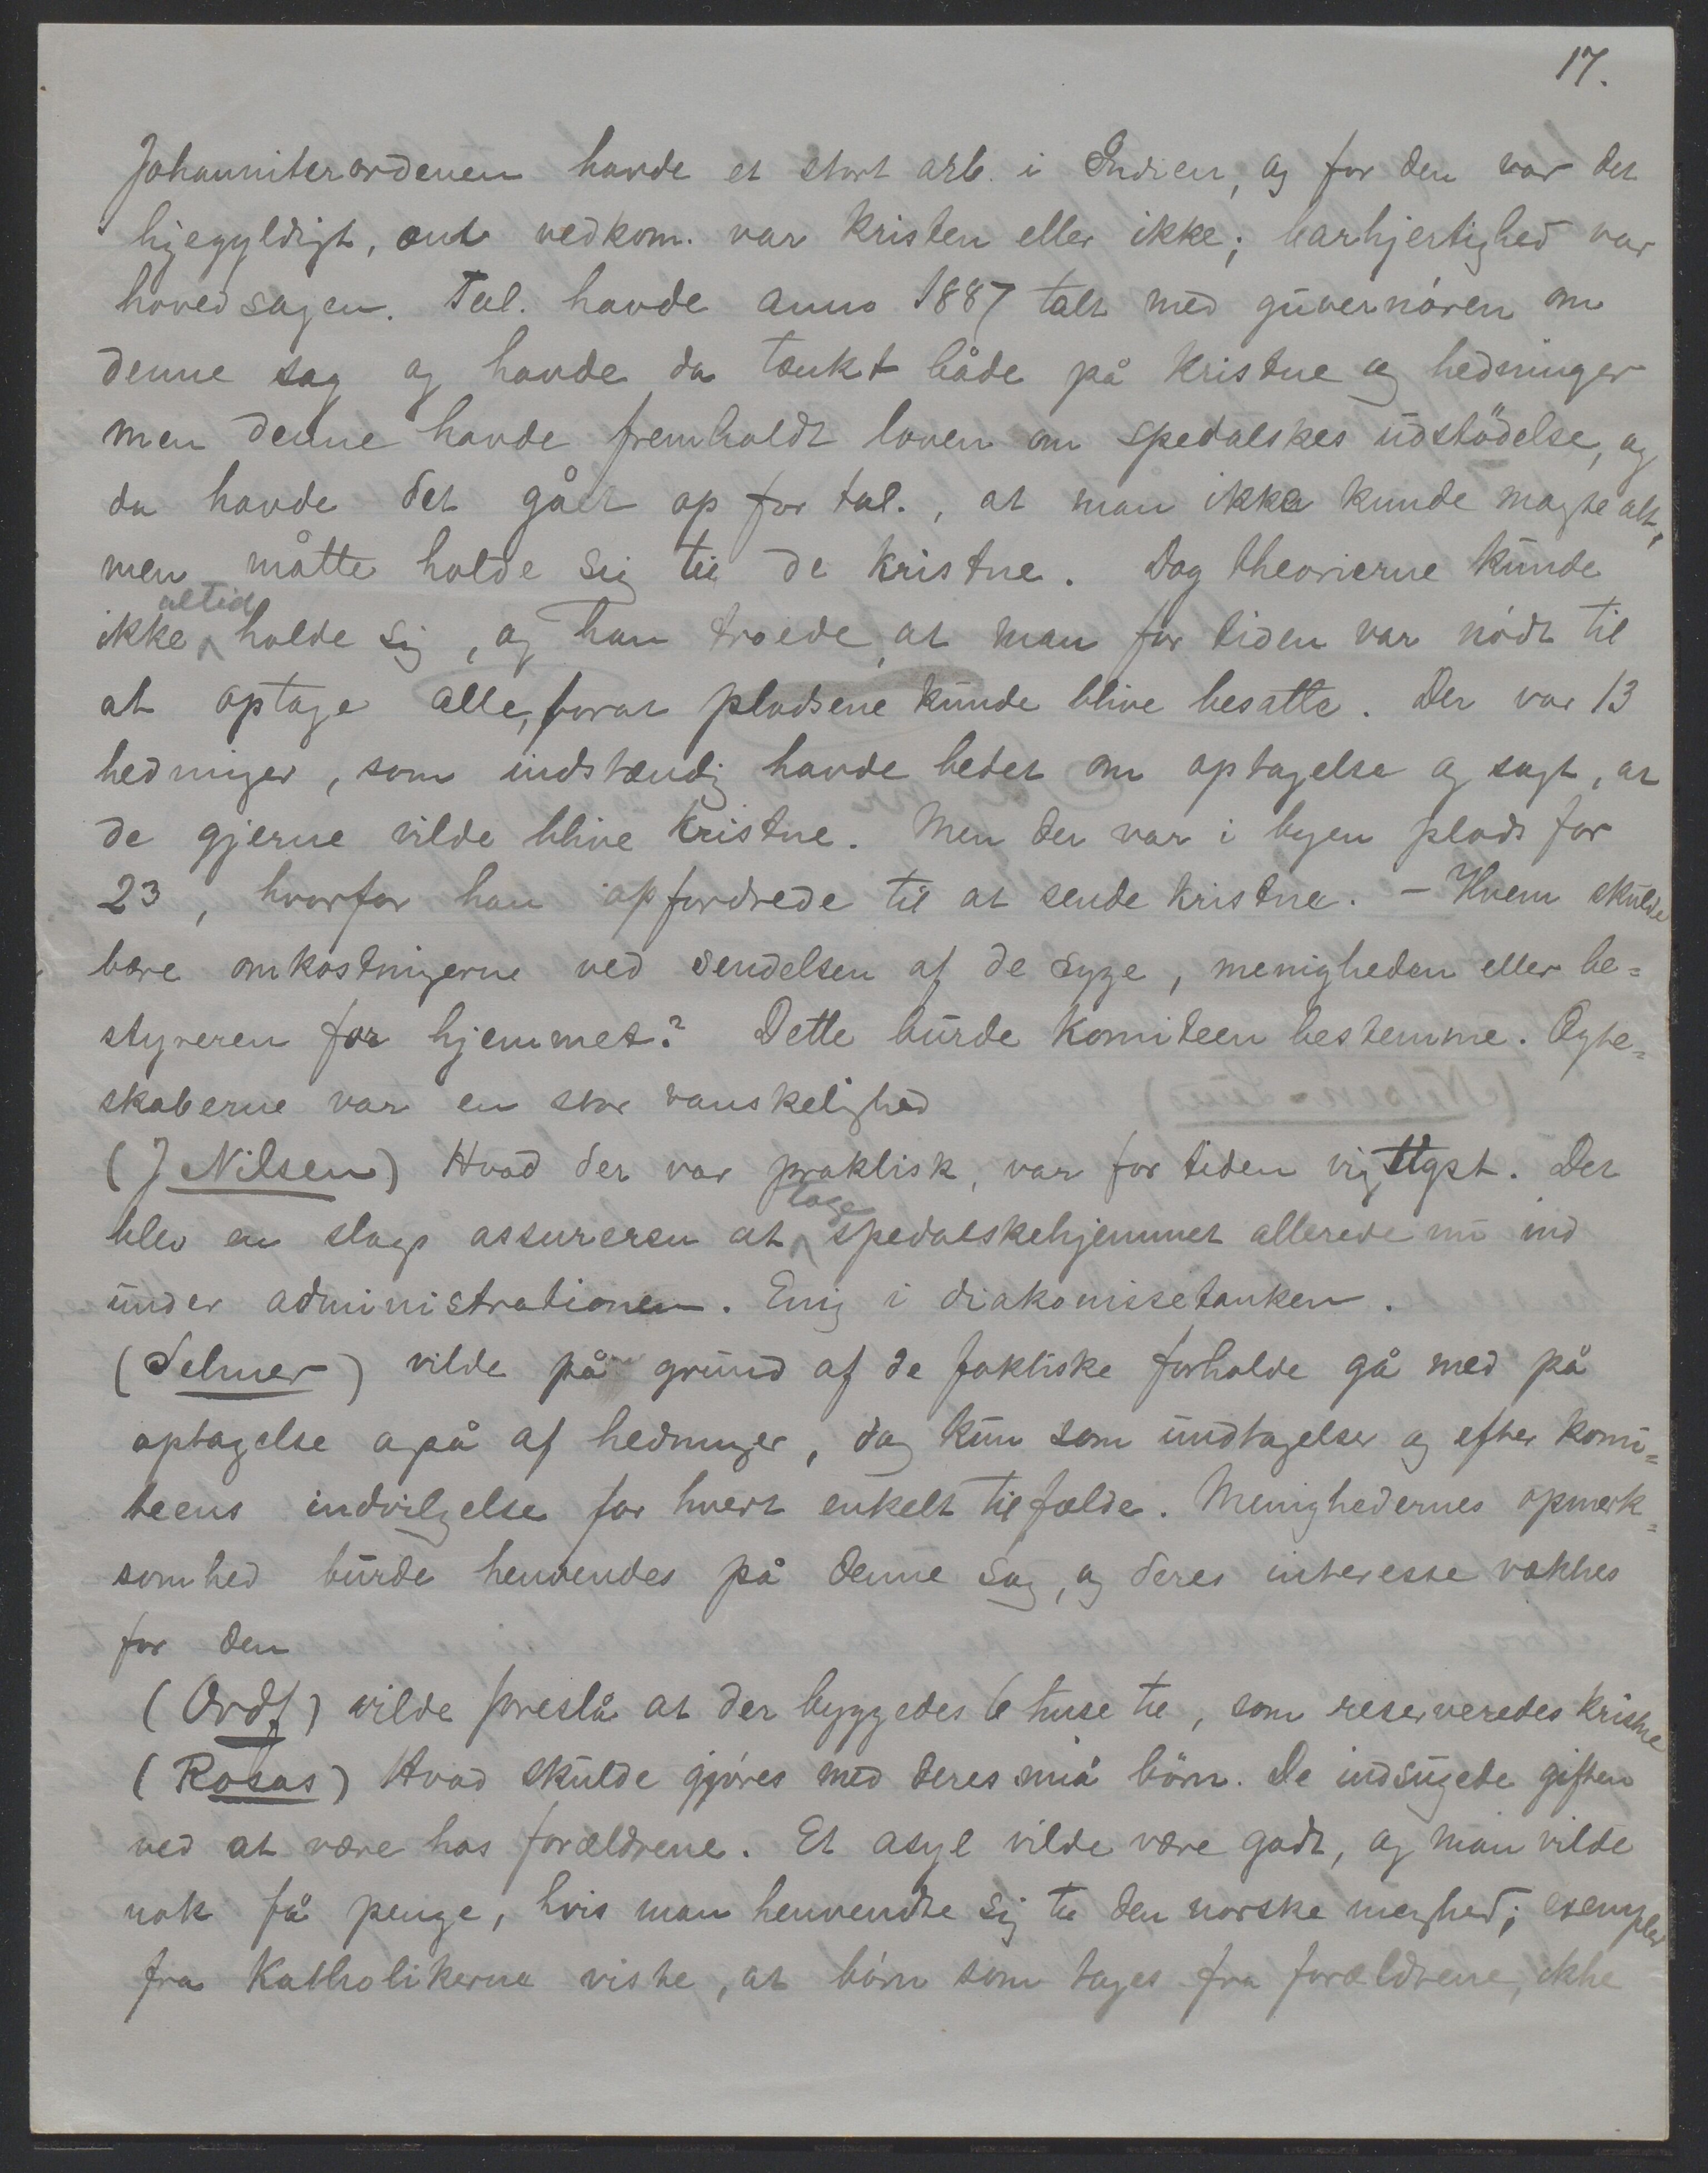 17.
Johanniterordenen havde et stort arb. i Indien, og for den var det
ligegyldigt, om vedkom. var kristen eller ikke; barhjertighed var
hovedsagen. Tal. havde anno 1887 talt med guvernören om
denne sag og havde da tænkt både på kristne og hedninger
men denne havde fremholdt loven om spedalskes udstödelse, og
da havde det gået op for tal., at man ikke kunde magte alt,
men måtte holde sig til de kristne. Dog theorierne kunde
ikke altid holde sig, og han troede, at man for tiden var nödt til
at optage alle, forat pladsene kunde blive besatte. Der var 13
hedninger, som indstændig havde bedet om optagelse og sagt, at
de gjerne vilde blive kristne. Men der var i byen plads for
23, hvorfor han opfordrede til at sende kristne. – Hvem skulde
bære omkostningerne ved sendelsen af de syge, menigheden eller be=
styreren for hjemmet? Dette burde komiteen bestemme. Ægte=
skaberne var en stor vanskelighed
(J Nilsen) Hvad der var praktisk, var for tiden vigtigst. Det
blev en slags assureren at tage spedalskehjemmet allerede nu ind
under administrationen. Enig i diakonissetanken.
(Selmer) vilde på grund af de faktiske forholde gå med på
optagelse også af hedninger, dog kun som undtagelser og efter komi=
teens indvilgelse for hvert enkelt tilfælde. Menighedernes opmærk=
somhed burde henvendes på denne sag, og deres interesse vækkes
for den
(Ordf) vilde foreslå at der byggedes 6 huse til, som reserveredes kristne
(Rosaas) Hvad skulde gjöres med deres små börn. De indsugede giften
ved at være hos forældrene. Et asyl vilde være godt, og man vilde
nok få penge, hvis man henvendte sig til den norske menighed; exempler
fra Katholikerne viste, at börn som tages fra forældrene, ikke